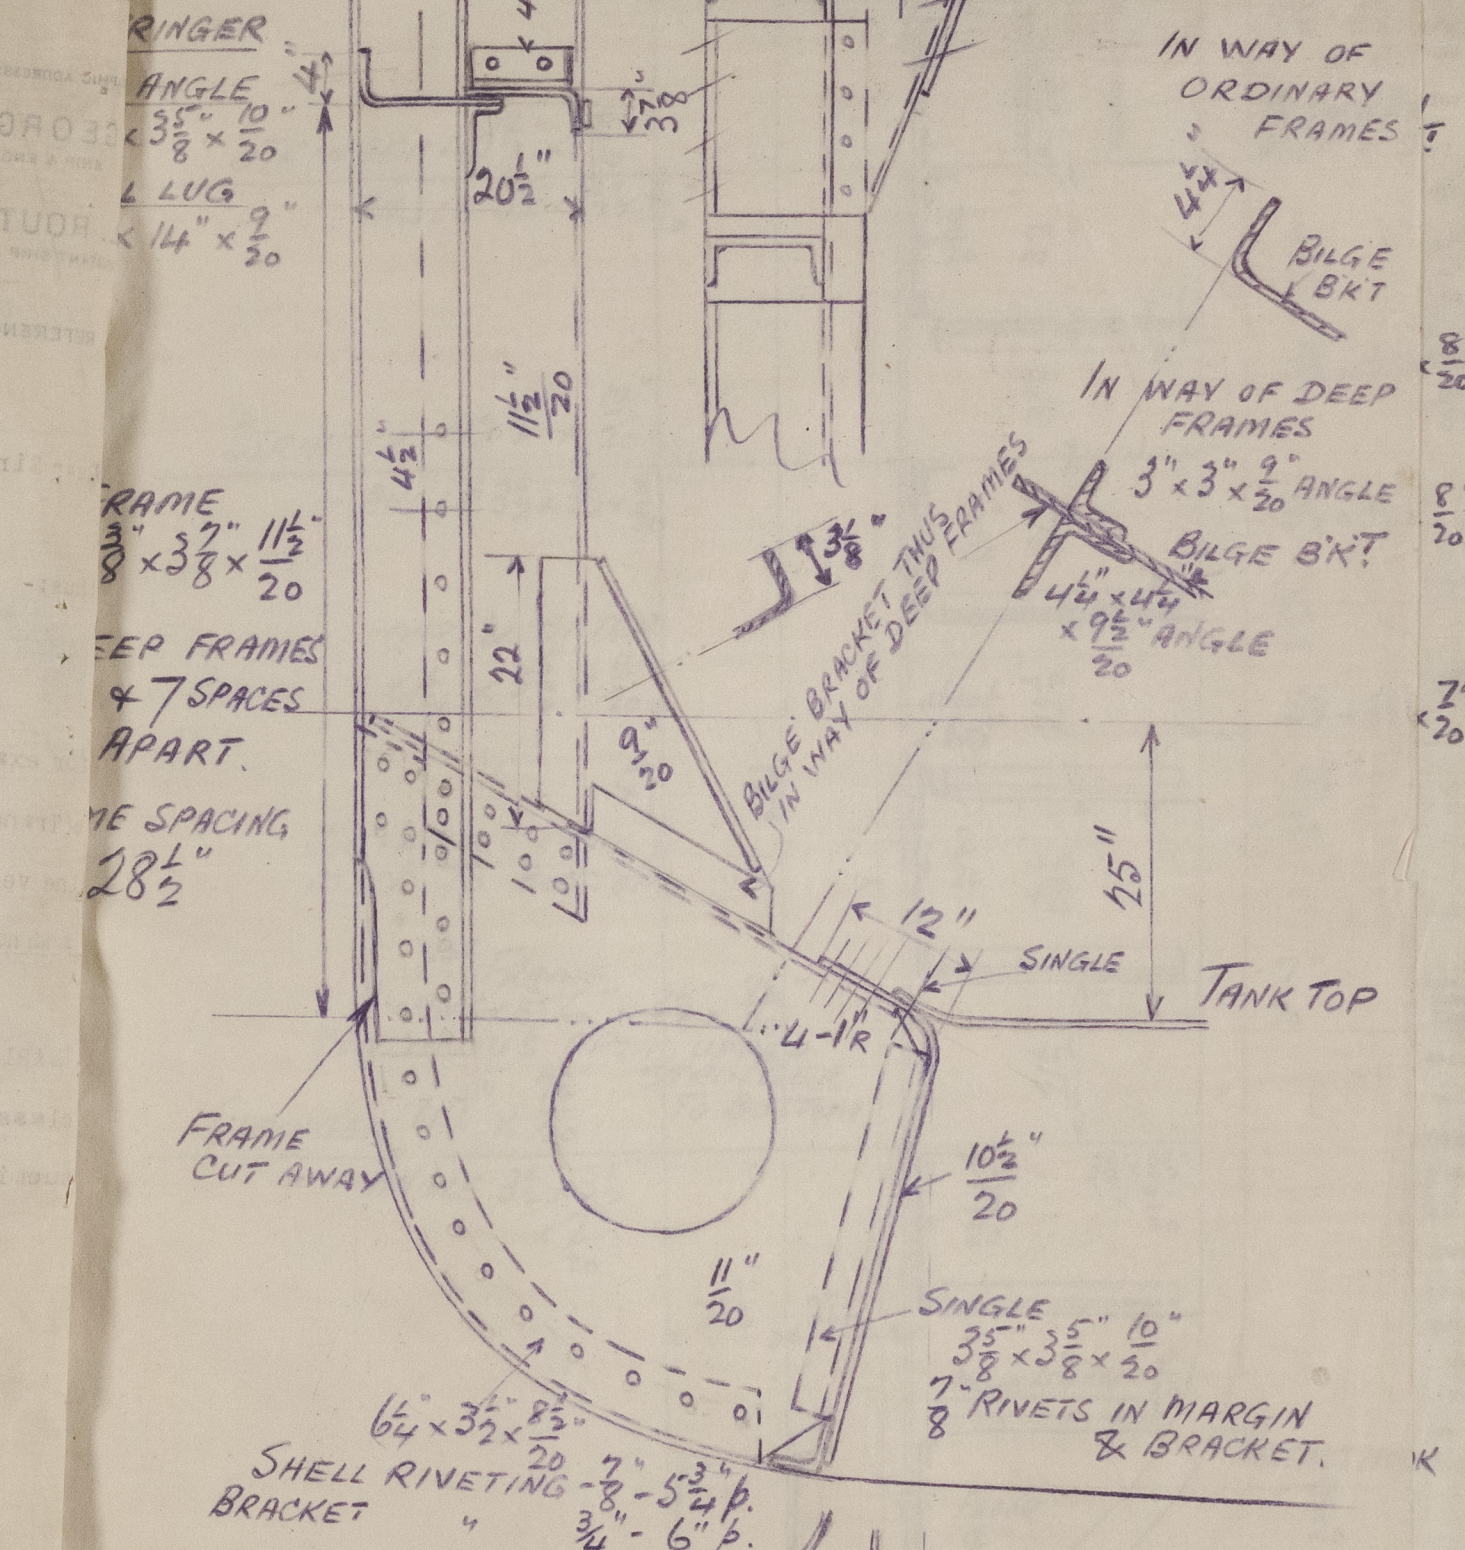 RINGER
4"
ANGLE
x 3 5/8" x 10/20"
L LUG
x 14" x 9/20"
3 7/8"
20 1/2"
11 1/2"/20
4 1/2"
FRAME
3/8" x 3 7/8" x 11 1/2"/20
EEP FRAMES
& 7 SPACES
APART.
ME SPACING
28 1/2"
22"
9"/20
3 1/8"
BILGE BRACKET THUS
IN WAY OF DEEP FRAMES
IN WAY OF
ORDINARY
FRAMES
4 1/4"
BILGE
BKT
IN WAY OF DEEP
FRAMES
3" x 3" x 9/20" ANGLE
BILGE BKT
4 1/4" x 4 1/4"
x 9 1/2"/20 ANGLE
8/20
8/20
x 7/20
25"
12"
SINGLE
TANK TOP
4-1"R
FRAME
CUT AWAY
10 1/2"/20
11"/20
SINGLE
3 5/8" x 3 5/8" x 10/20"
7/8" RIVETS IN MARGIN
& BRACKET.
K
6 1/4" x 3 1/2" x 8 1/2"/20
SHELL RIVETING - 7/8" - 5 3/4" p.
BRACKET " 3/4" - 6" p.